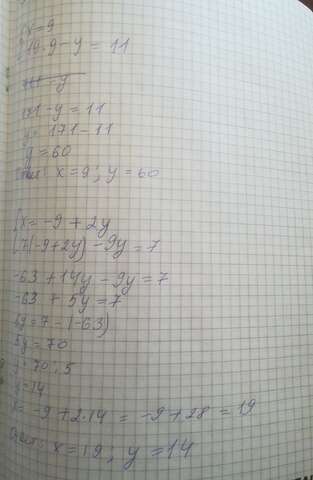 {x = 9
19·9 - y = 11
171 - y = 11
y = 171 - 11
y = 60
Ответ: x = 9; y = 60
{x = -9 + 2y
7(-9+2y) - 9y = 7
-63 + 14y - 9y = 7
-63 + 5y = 7
5y = 7 - (-63)
5y = 70
y = 70 : 5
y = 14
x = -9 + 2·14 = -9 + 28 = 19
Ответ: x = 19, y = 14